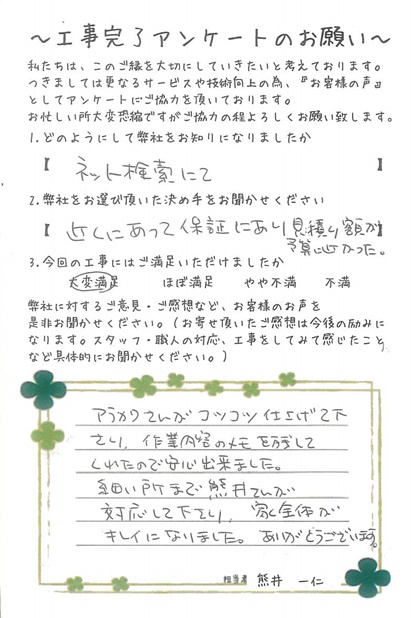 ～工事完了アンケートのお願い～
私たちは、このご縁を大切にしていきたいと考えております。
つきましては更なるサービスや技術向上の為、『お客様の声』
としてアンケートにご協力を頂いております。
お忙しい所大変恐縮ですがご協力の程よろしくお願い致します。
1.どのようにして弊社をお知りになりましたか
【 ネット検索にて 】
2.弊社をお選び頂いた決め手をお聞かせください
【 近くにあって保証にあり見積り額が
予算に近かった。 】
3.今回の工事にはご満足いただけましたか
大変満足 ほぼ満足 やや不満 不満
弊社に対するご意見・ご感想など、お客様のお声を
是非お聞かせください。(お寄せ頂いたご感想は今後の励みに
なります。スタッフ・職人の対応、工事をしてみて感じたこと
など具体的にお聞かせください。)
アラカワさんがコツコツ仕上げて下
さり、作業内容のメモを残して
くれたので安心出来ました。
細い所まで熊井さんが
対応して下さり、家全体が
キレイになりました。ありがとうございます。
担当者 熊井 一仁